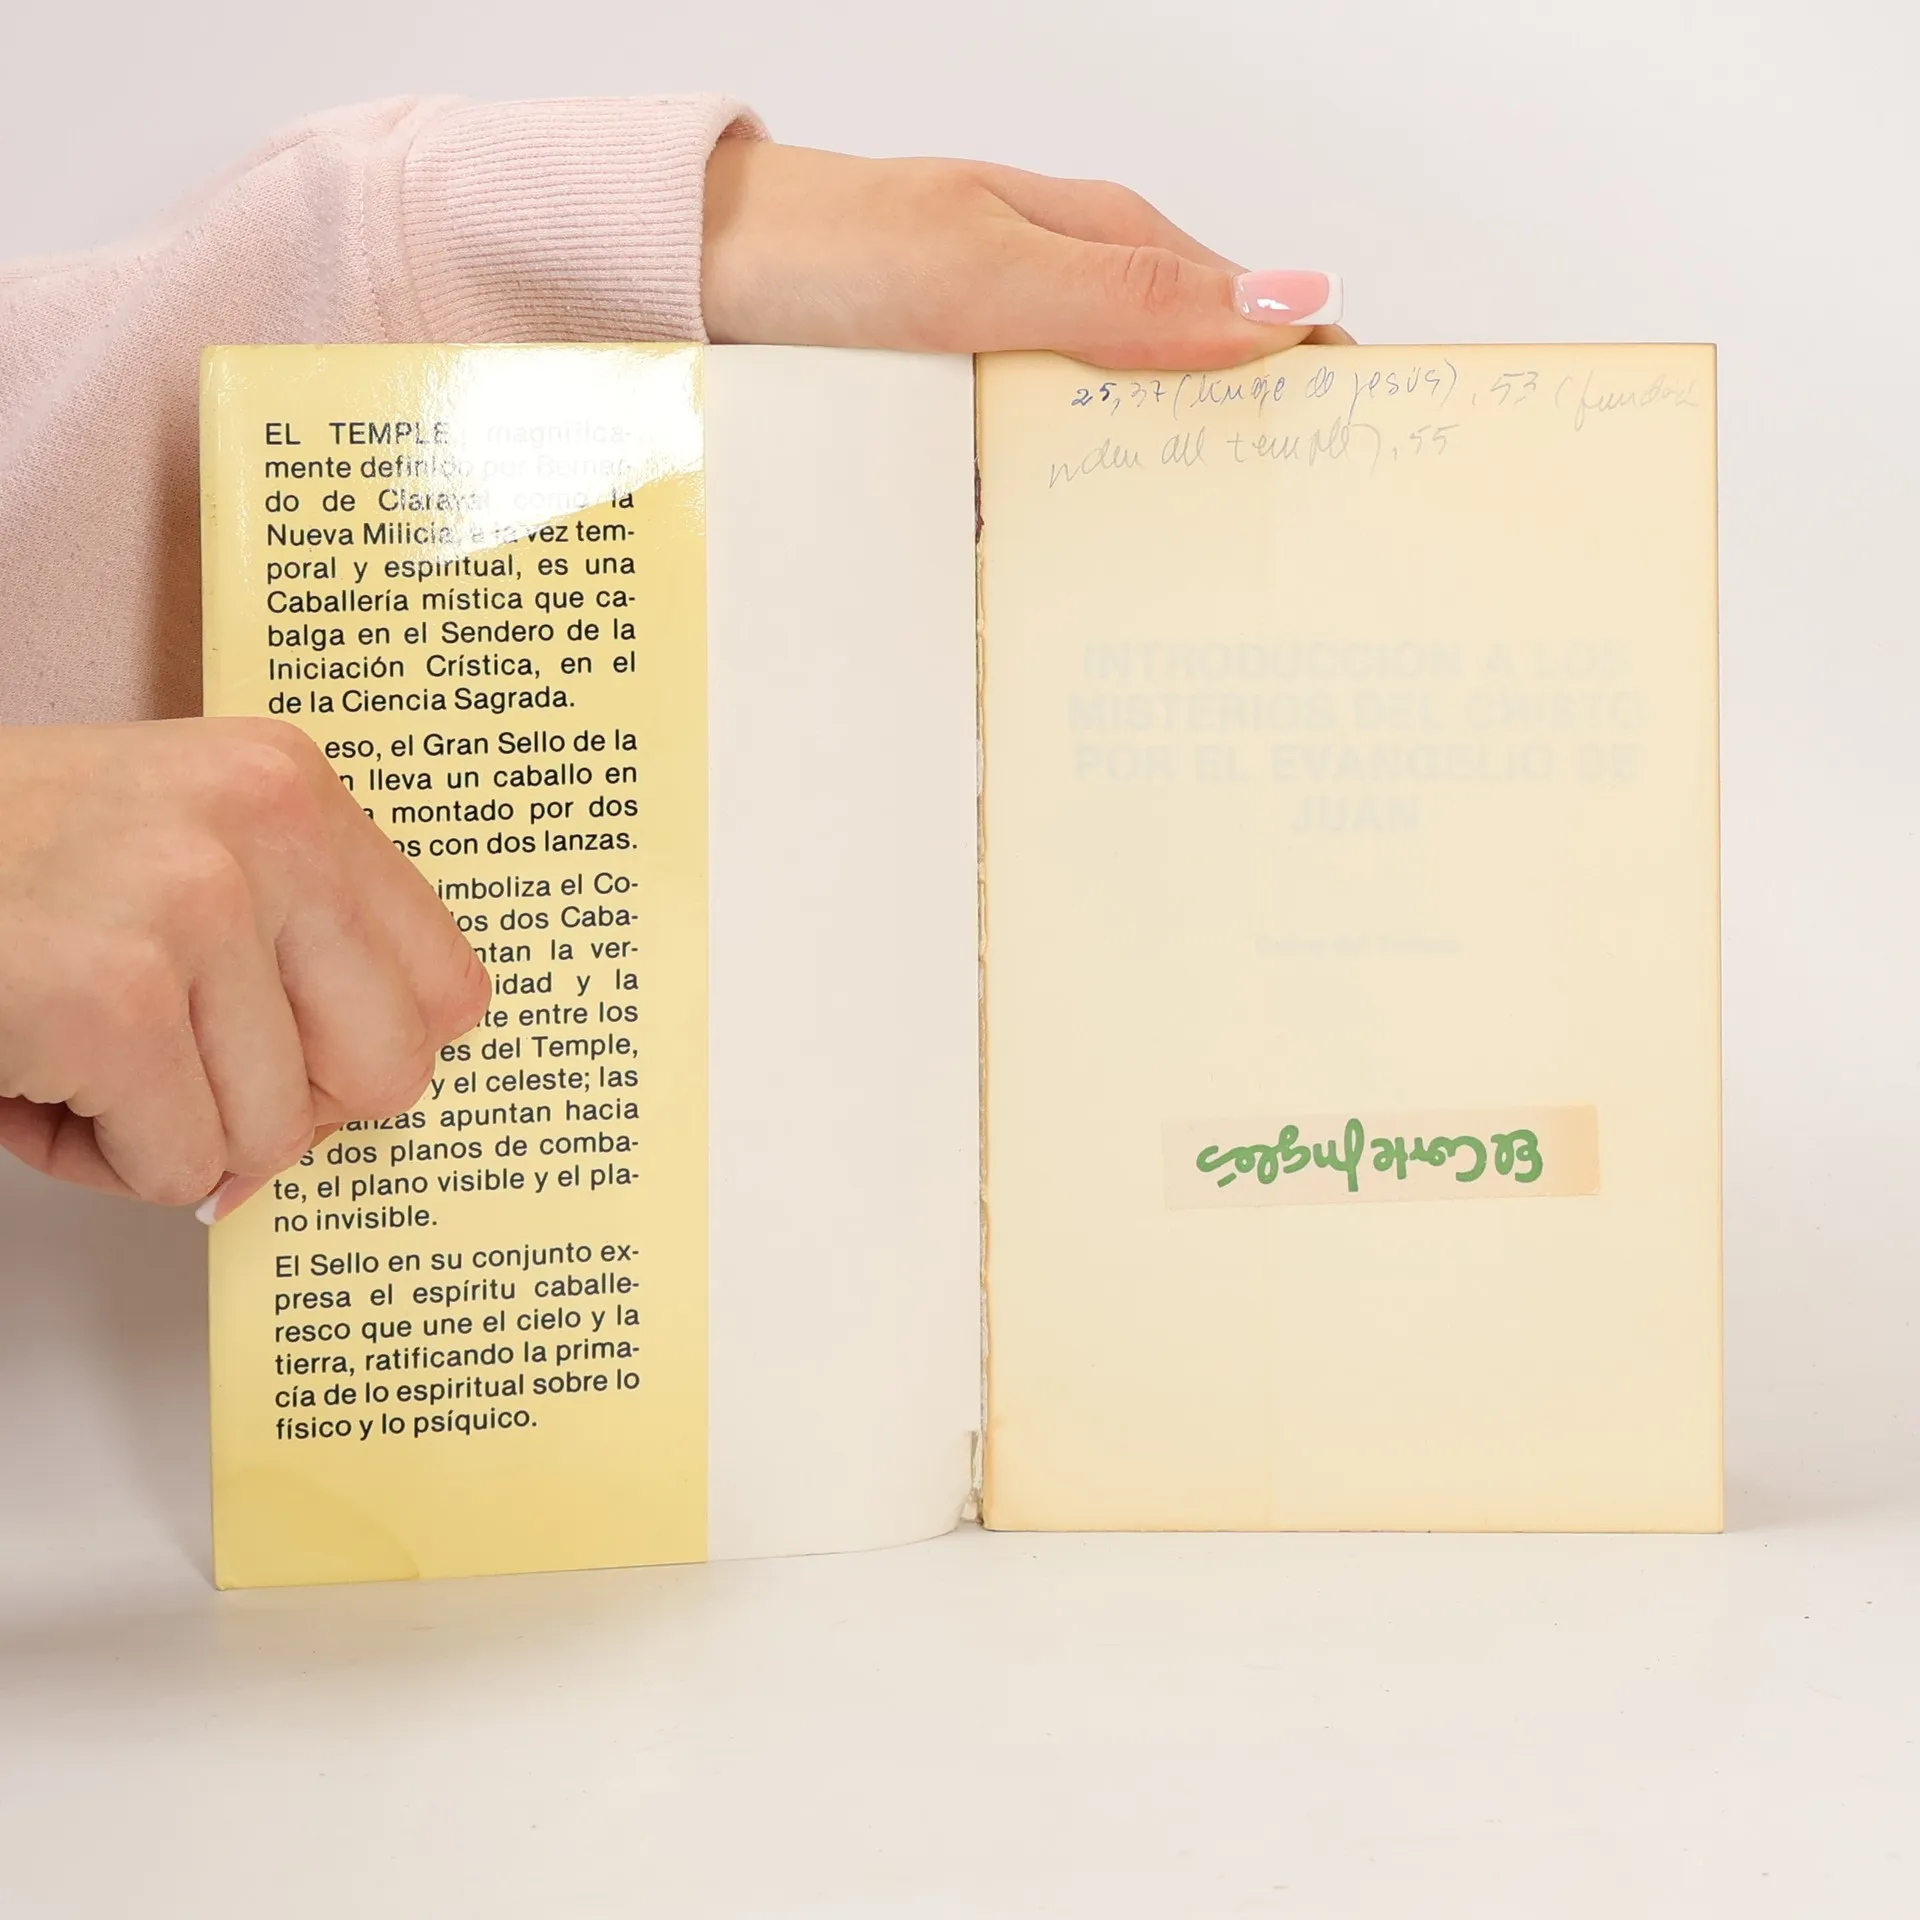 EL TEMPLE, magnifica-
mente definido por Bernar-
do de Claraval como la
Nueva Milicia, a la vez tem-
poral y espiritual, es una
Caballería mística que ca-
balga en el Sendero de la
Iniciación Crística, en el
de la Ciencia Sagrada.
eso, el Gran Sello de la
n lleva un caballo en
a montado por dos
os con dos lanzas.
imboliza el Co-
los dos Caba-
ntan la ver-
idad y la
te entre los
es del Temple,
y el celeste; las
lanzas apuntan hacia
s dos planos de comba-
te, el plano visible y el pla-
no invisible.
El Sello en su conjunto ex-
presa el espíritu caballe-
resco que une el cielo y la
tierra, ratificando la prima-
cía de lo espiritual sobre lo
físico y lo psíquico.
25, 37 (linaje de Jesús), 53 (fundac
orden del temple), 55
INTRODUCCION A LOS
MISTERIOS DEL CRISTO
POR EL EVANGELIO DE
JUAN
El Corte Inglés